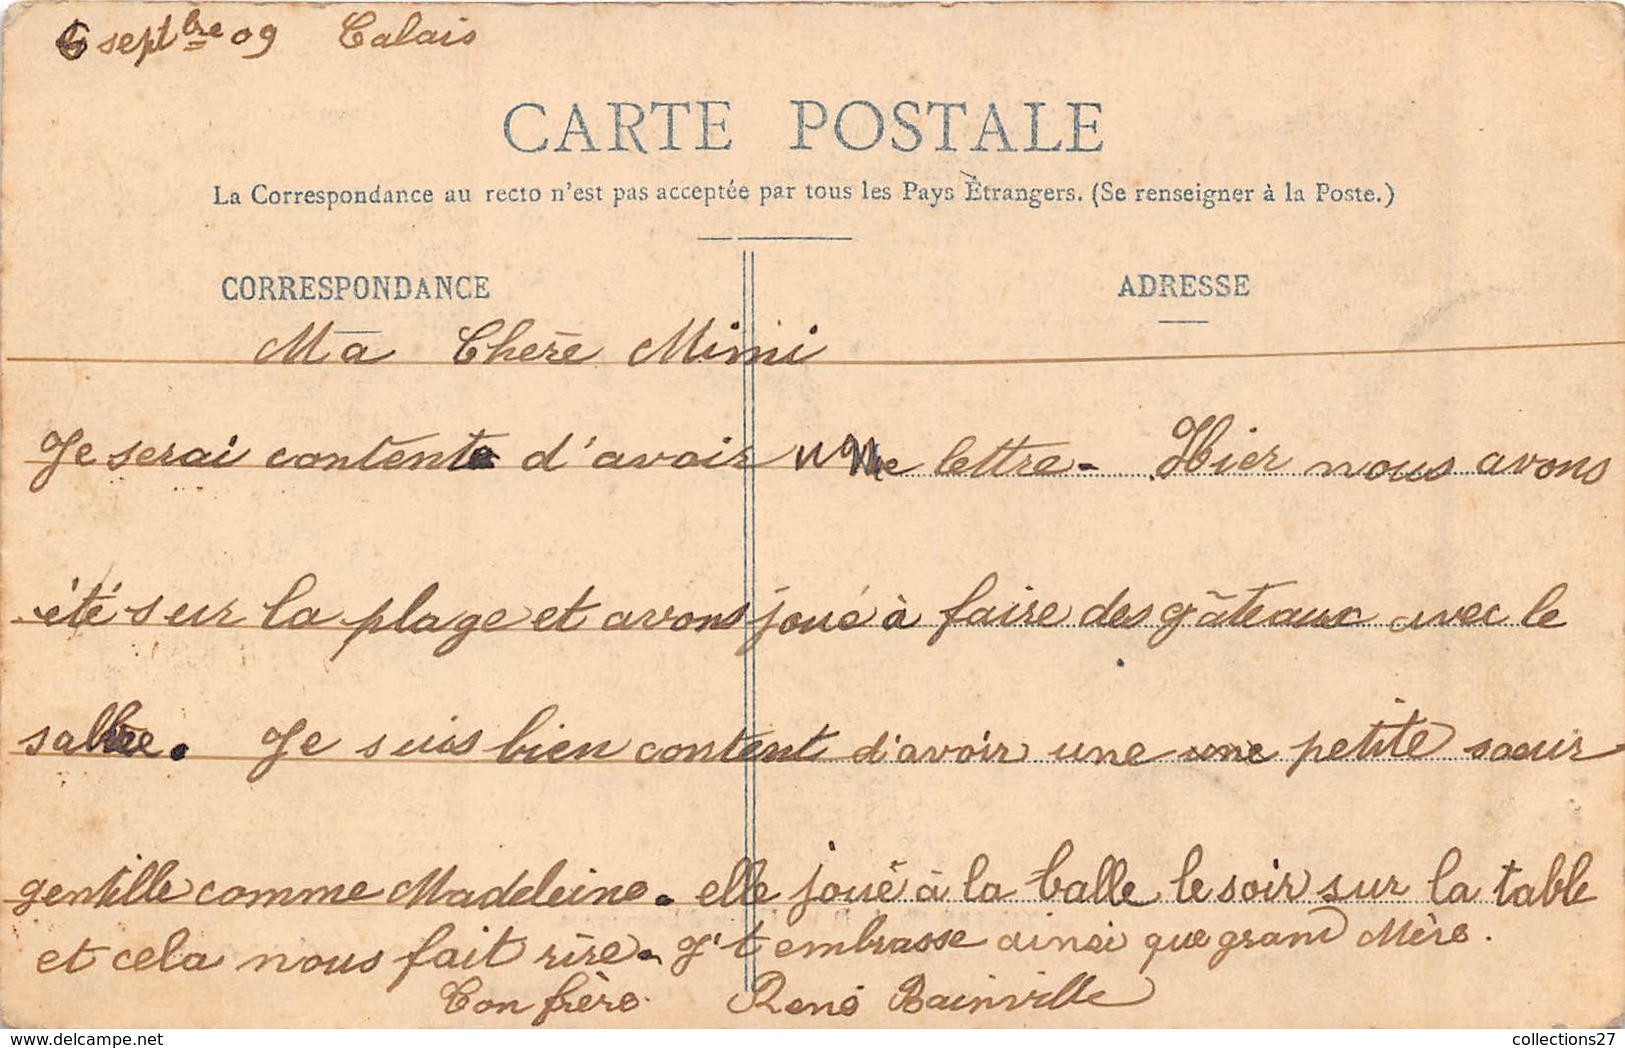 6 septbre 09 Calais
CARTE POSTALE
La Correspondance au recto n'est pas acceptée par tous les Pays Étrangers. (Se renseigner à la Poste.)
CORRESPONDANCE
ADRESSE
Ma Chère Mimi
Je serai contente d'avoir une lettre - Hier nous avons
été sur la plage et avons joué à faire des gâteaux avec le
sable. Je suis bien content d'avoir une une petite sœur
gentille comme Madeleine. elle joué à la balle le soir sur la table
et cela nous fait rire. J't embrasse ainsi que grand Mère.
Ton frère. René Bainville
delcampe.net
collections27